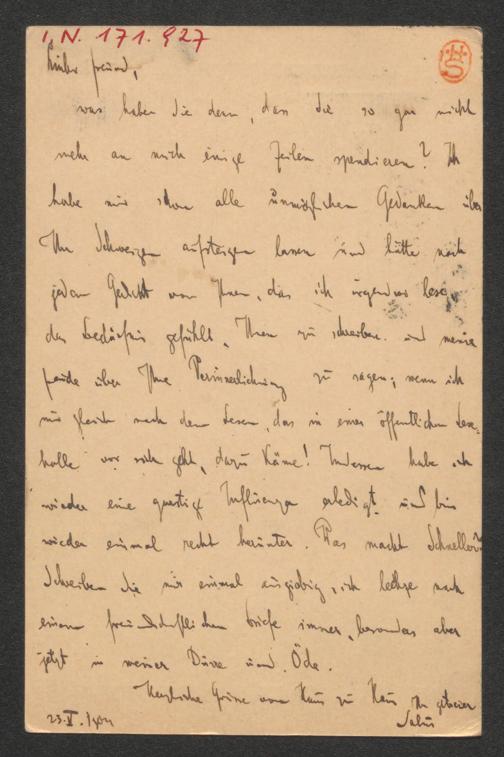 I. N. 171.927
Lieber Freund,
was haben Sie denn, dass Sie so gar nicht
mehr an mich einige Zeilen spendieren? Ich
habe mir schon alle unmöglichen Gedanken über
Ihr Schweigen aufsteigen lassen und hätte nach
jedem Gedicht von Ihnen, das ich irgendwo lese,
das Bedürfnis gefühlt, Ihnen zu schreiben und meine
Freude über Ihre Verinnerlichung zu sagen; wenn ich
nur gleich nach dem Lesen, das in einer öffentlichen Lese-
halle vor sich geht, dazu käme! Indessen habe ich
wieder eine garstige Influenza erledigt und bin
wieder einmal recht herunter. Was macht Schneller?
Schreiben Sie mir einmal ausgiebig, ich lechze nach
einem freundschaftlichen Briefe immer, besonders aber
jetzt in meiner Dürre und Öde.
Herzliche Grüsse von Haus zu Haus Ihr getreuer
Salus
23. V. 1904